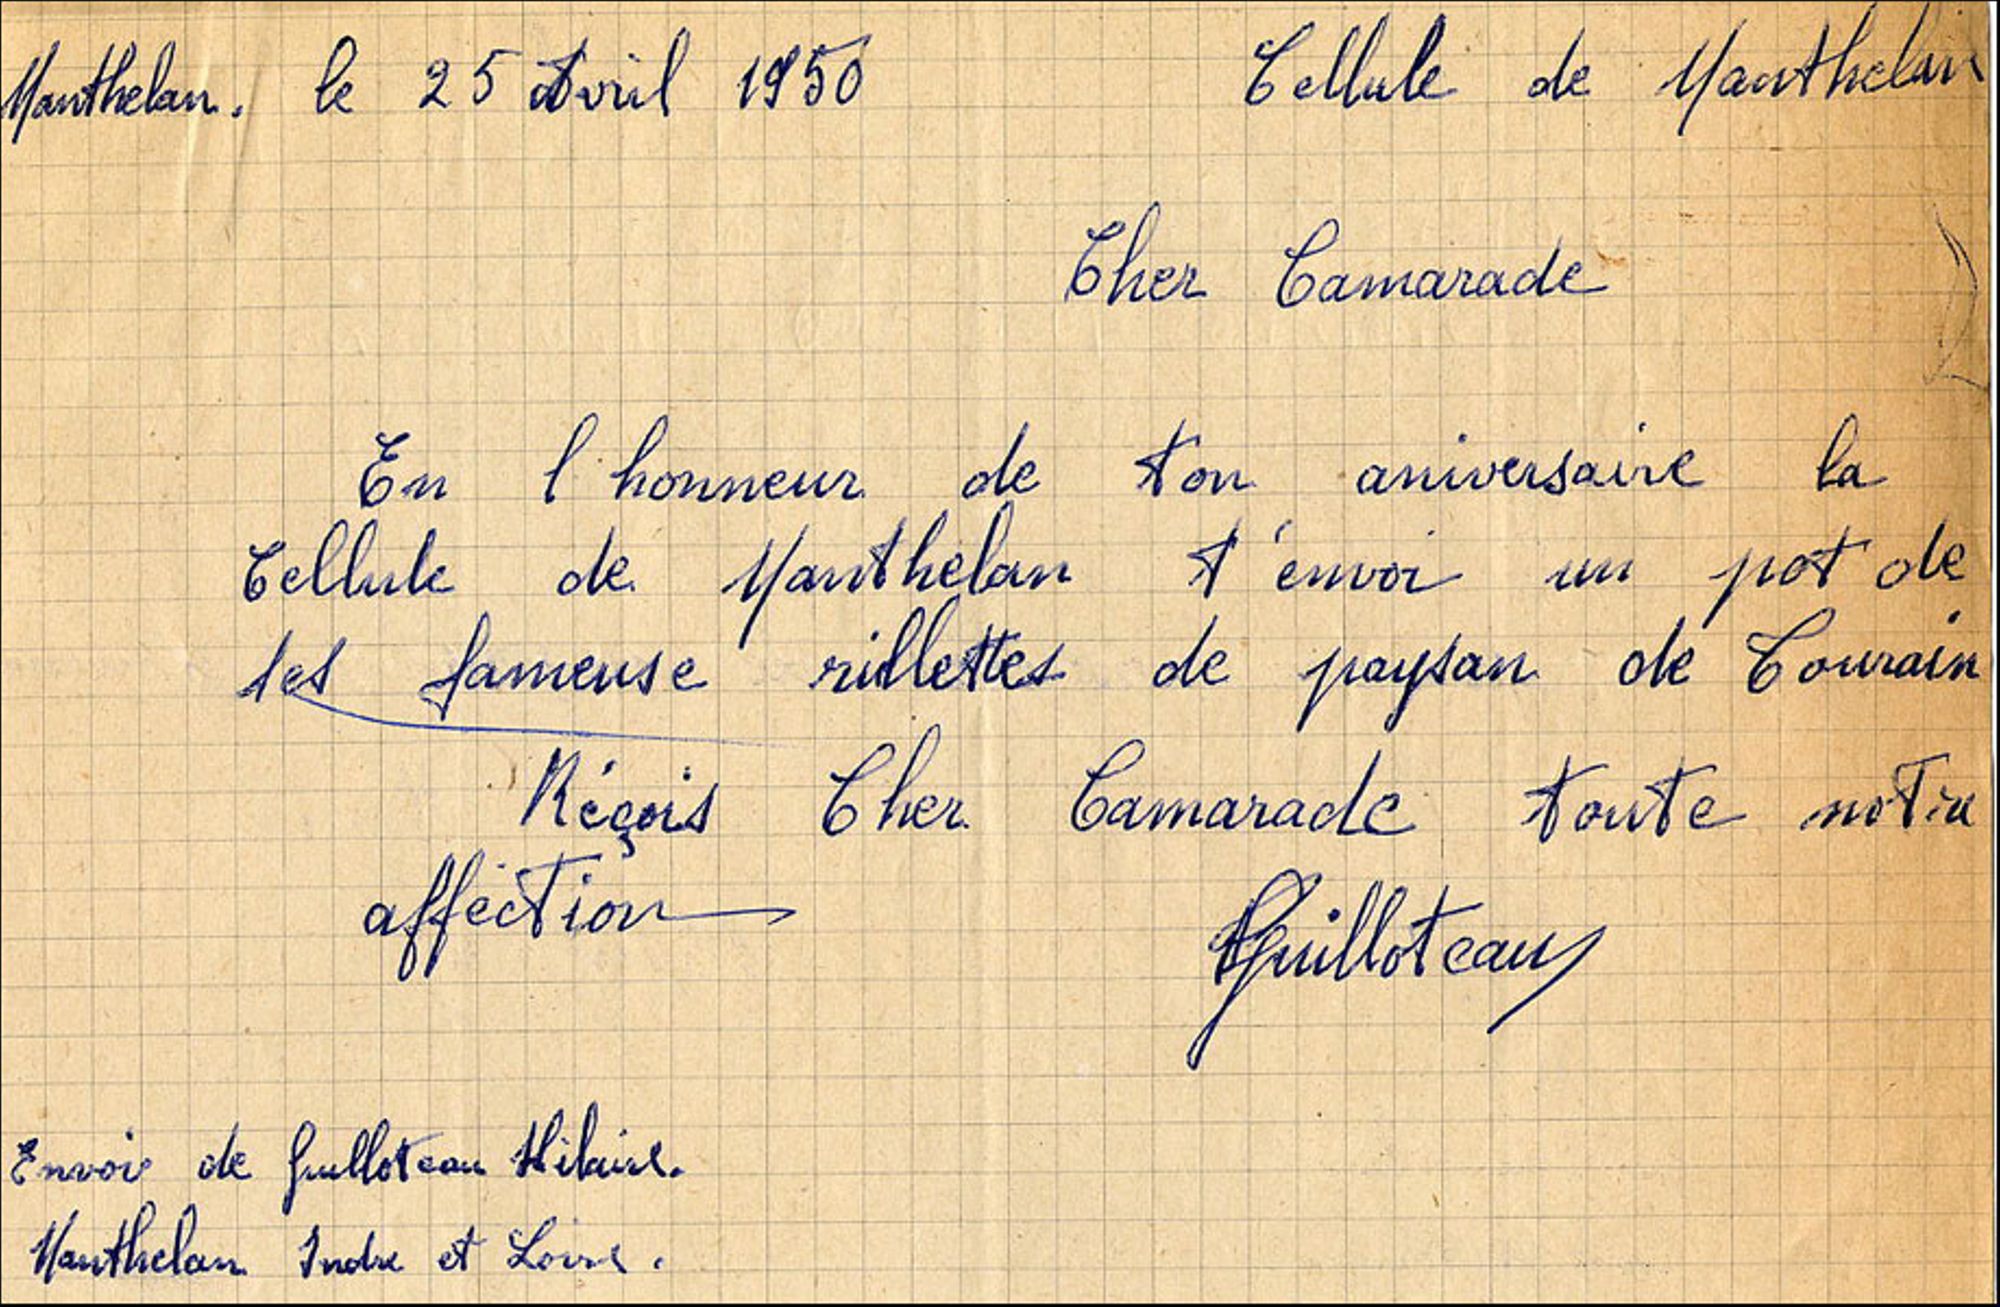 Manthelan. le 25 Avril 1950 Cellule de Manthelan
Cher Camarade
En l'honneur de ton aniversaire la
Cellule de Manthelan t'envoi un pot de
ses fameuse rillettes de paysan de Tourain
Réçois Cher Camarade toute notre
afféction
Guilloteau
Envoie de Guilloteau Hilaire.
Manthelan Indre et Loire.